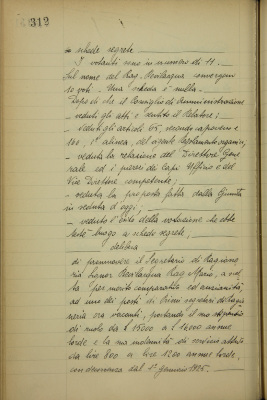 312
= schede segrete
I votanti sono in numero di 11.
Sul nome del Rag. Bevilacqua convergono
10 voti. Una scheda è nulla.
Dopo di che il Consiglio di Amministrazione
- veduti gli atti e sentito il Relatore;
- veduti gli articoli 65, secondo capoverso e
100, 1° alinea, del vigente Regolamento organico;
- veduta la relazione del Direttore Gene
rale ed i pareri dei Capi Ufficio e del
Vice Direttore competente;
- veduta la proposta fatta dalla Giunta
in seduta d'oggi;
- veduto l'esito della votazione che ebbe
luogo a schede segrete,
delibera
di promuovere il Segretario di Ragione
ria Signor Bevilacqua Rag. Mario, a scel
ta "per merito comparativo ed anzianità",
ad uno dei posti di Primo segretario di Ragio
neria ora vacanti, portando il suo stipendio
di ruolo da £ 15000 a £ annue
lorde e la sua indennità di servizio attivo
da lire 800 a lire 1200 annue lorde,
con decorrenza dal 1° gennaio 1925.